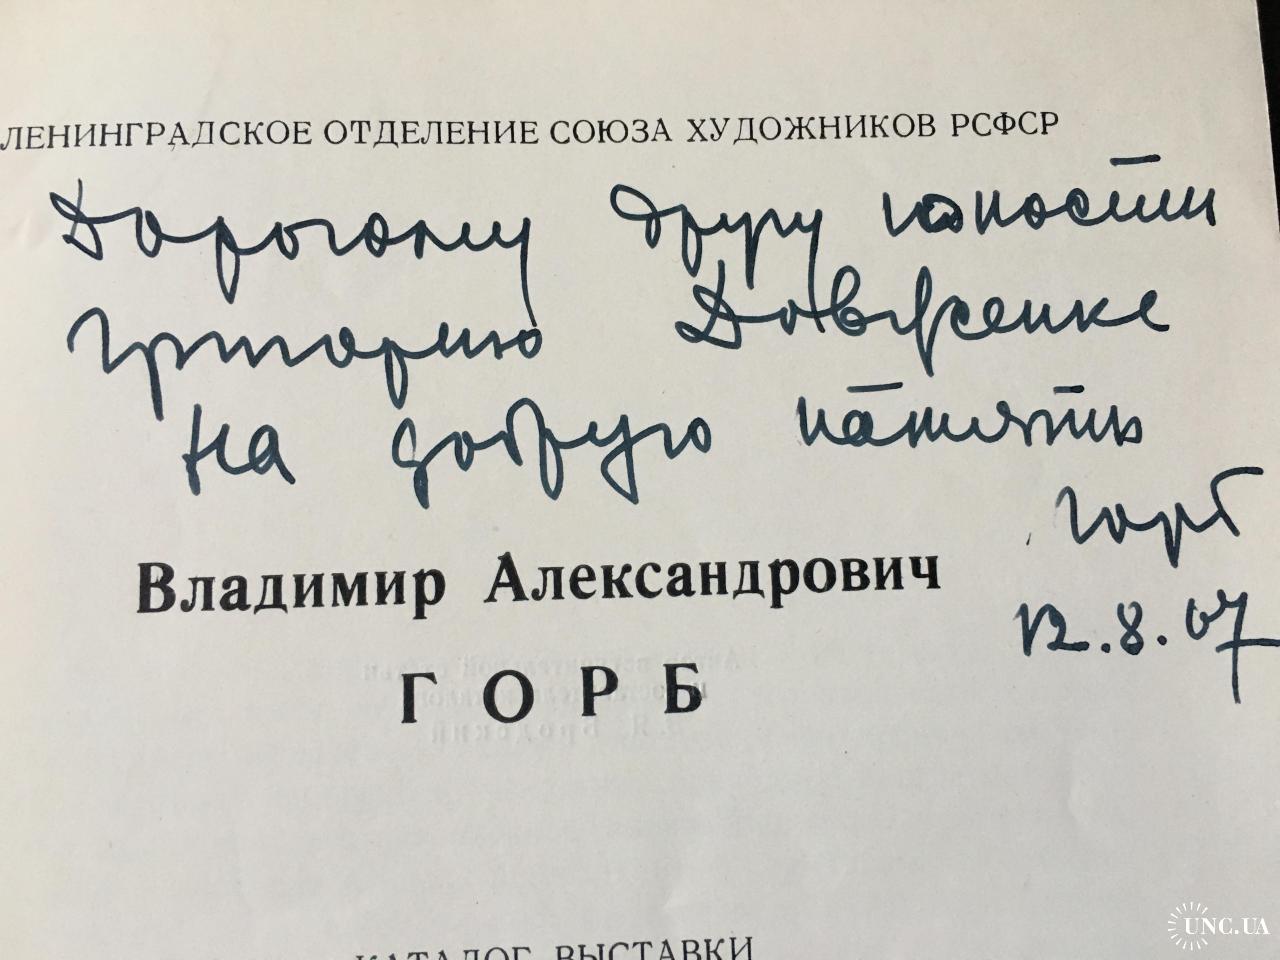 ЛЕНИНГРАДСКОЕ ОТДЕЛЕНИЕ СОЮЗА ХУДОЖНИКОВ РСФСР
Дорогому другу юности
Григорию Довженке
на добрую память
Горб
12.8.67
Владимир Александрович
ГОРБ
КАТАЛОГ ВЫСТАВКИ
UNC.UA